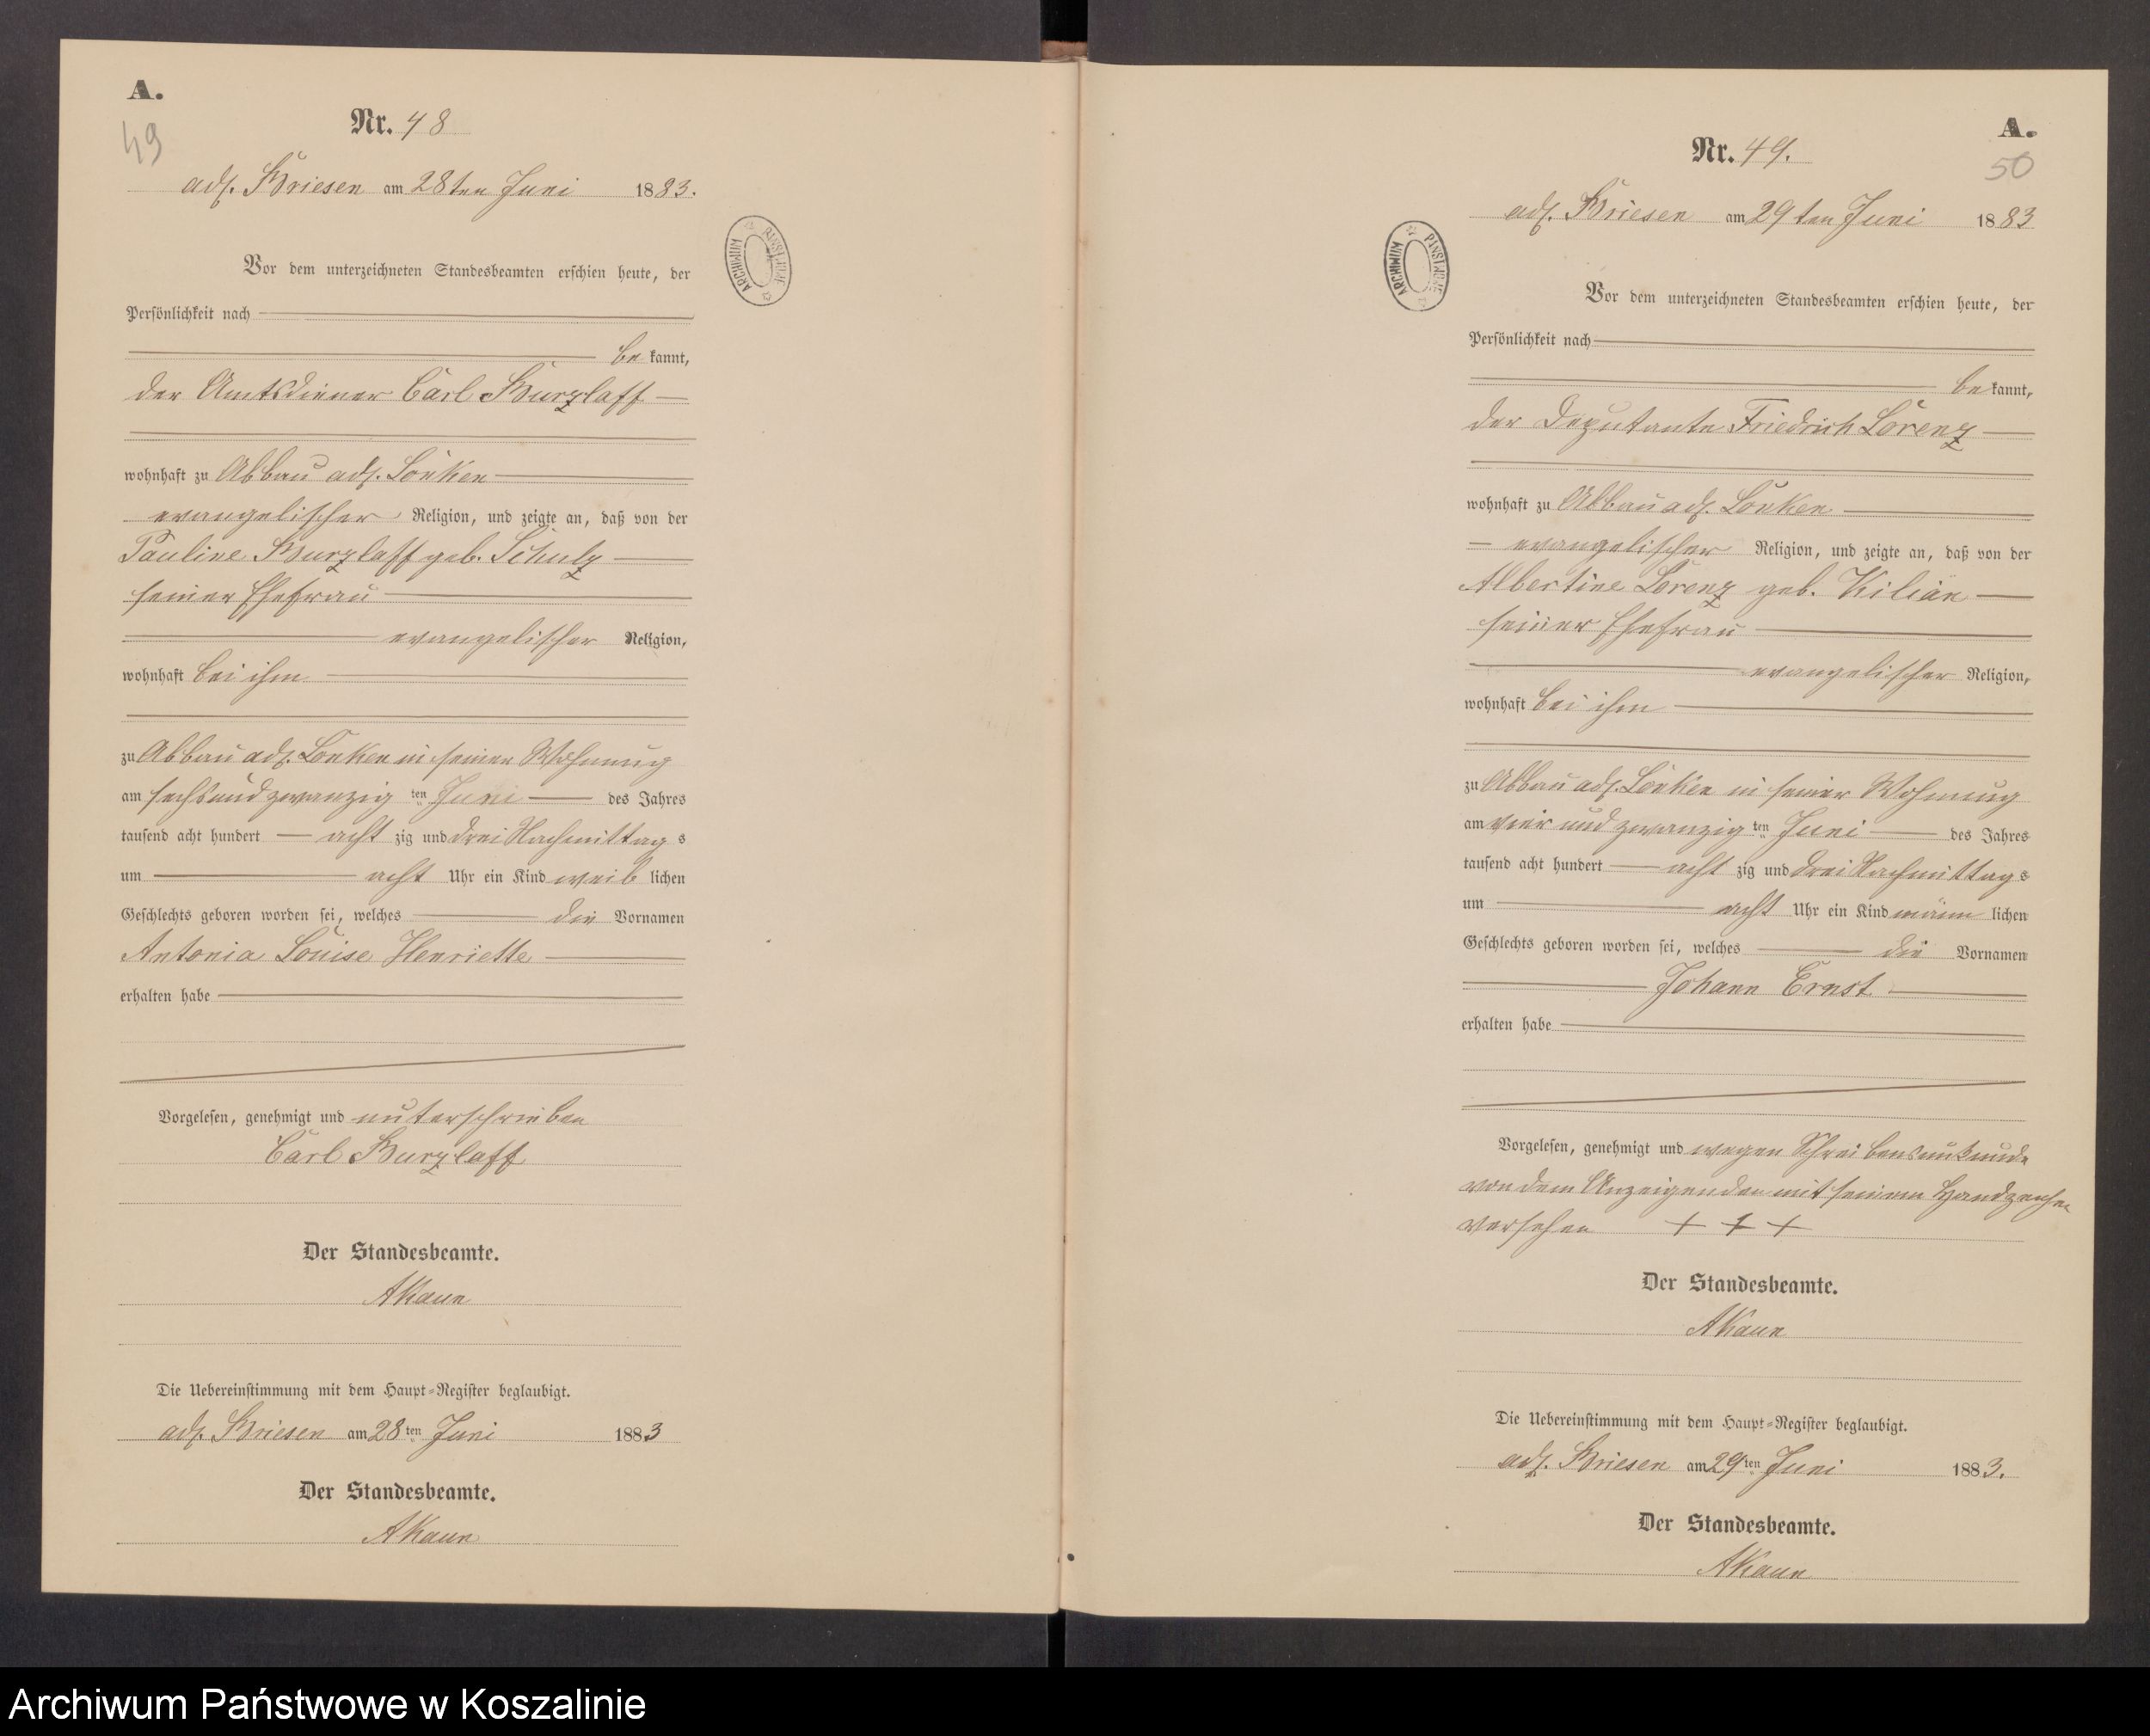 A.
49
Nr. 48
adl. Briesen am 28ten Juni 1883.
ARCHIWUM PAŃSTWOWE
Vor dem unterzeichneten Standesbeamten erschien heute, der
Persönlichkeit nach
be kannt,
der Amtsdiener Carl Burzlaff
wohnhaft zu Abbau adl. Lonken
evangelischer Religion, und zeigte an, daß von der
Pauline Burzlaff geb. Schulz
seiner Ehefrau
evangelischer Religion,
wohnhaft bei ihm
zu Abbau adl. Lonken in seiner Wohnung
am sechsundzwanzig ten Juni des Jahres
tausend acht hundert acht zig und drei Nachmittag s
um acht Uhr ein Kind weib lichen
Geschlechts geboren worden sei, welches die Vornamen
Antonia Louise Henriette
erhalten habe
Vorgelesen, genehmigt und unterschrieben
Carl Burzlaff
Der Standesbeamte.
AKaun
Die Uebereinstimmung mit dem Haupt-Register beglaubigt.
adl. Briesen am 28ten Juni 1883
Der Standesbeamte.
AKaun
A.
50
Nr. 49.
adl. Briesen am 29ten Juni 1883
ARCHIWUM PAŃSTWOWE
Vor dem unterzeichneten Standesbeamten erschien heute, der
Persönlichkeit nach
be kannt,
der Deputante Friedrich Lorenz
wohnhaft zu Abbau adl. Lonken
evangelischer Religion, und zeigte an, daß von der
Albertine Lorenz geb. Kilian
seiner Ehefrau
evangelischer Religion,
wohnhaft bei ihm
zu Abbau adl. Lonken in seiner Wohnung
am vier und zwanzig ten Juni des Jahres
tausend acht hundert acht zig und drei Nachmittag s
um acht Uhr ein Kind männ lichen
Geschlechts geboren worden sei, welches die Vornamen
Johann Ernst
erhalten habe
Vorgelesen, genehmigt und wegen Schreibensunkunde
von dem Anzeigenden mit seinem Handzeichen
versehen + + +
Der Standesbeamte.
AKaun
Die Uebereinstimmung mit dem Haupt-Register beglaubigt.
adl. Briesen am 29ten Juni 1883.
Der Standesbeamte.
AKaun
Archiwum Państwowe w Koszalinie